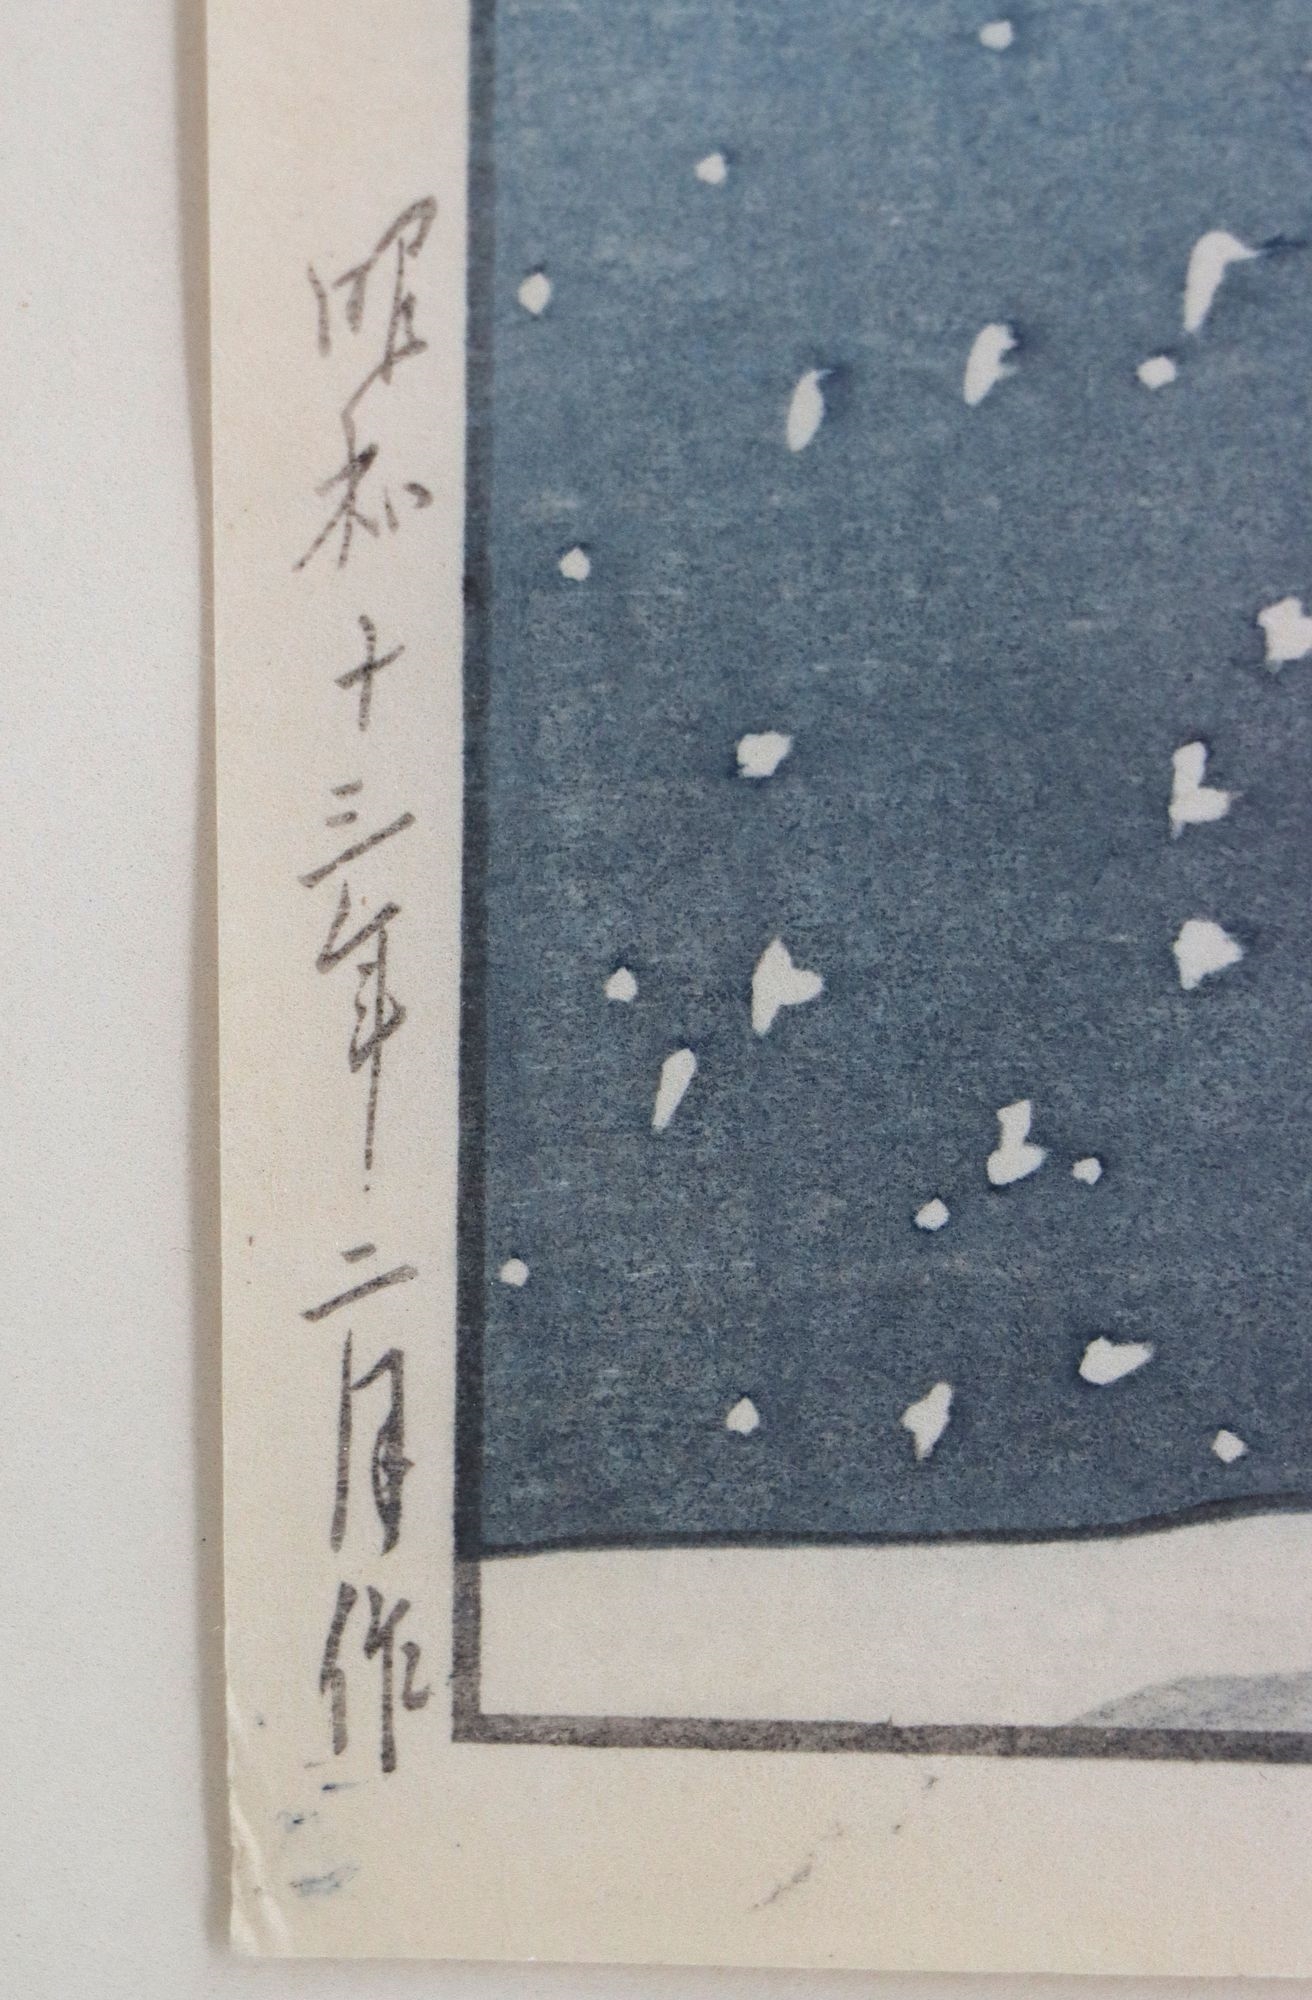 昭和十三年二月作